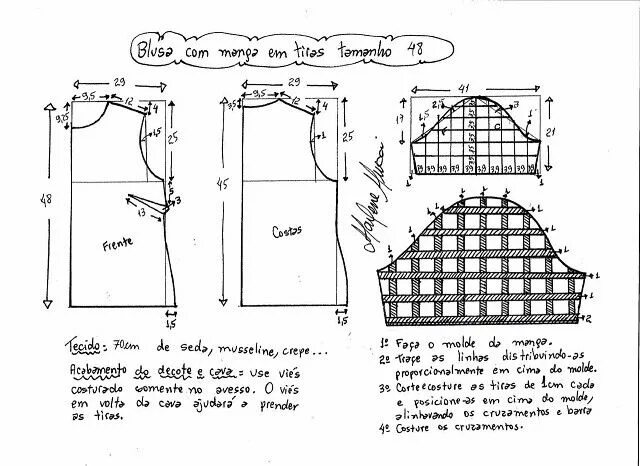 Blusa com manga em tiras tamanho 48
29
9,5
12
4
9,25
1,5
25
48
5
3
13
Frente
1,5
29
9,5
12
4
3,5
1
25
45
Costas
1,5
Marlene Mukai
41
17
2,5
3
1,5
F
C
1
21
3,9 3,9 3,9 3,9 3,9 3,9 3,9 3,9 3,9
1
1
1
1
1
1
1
1
1
1
1
1
2
Tecido: 70cm de seda, musseline, crepe...
Acabamento do decote e cava = use viés
costurado somente no avesso. O viés
em volta da cava ajudará a prender
as tiras.
1º Faça o molde da manga.
2º Trace as linhas distribuindo-as
proporcionalmente em cima do molde.
3º Corte e costure as tiras de 1cm cada
e posicione-as em cima do molde,
alinhavando os cruzamentos e barra
4º Costure os cruzamentos.